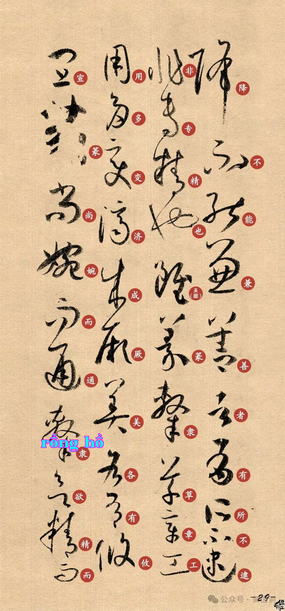 降不能兼善者有所不逮
非专精也虽篆隶草章工
用多变济成厥美各有攸
宜篆尚婉而通隶欲精而
rồng hồ
公众号
-29-